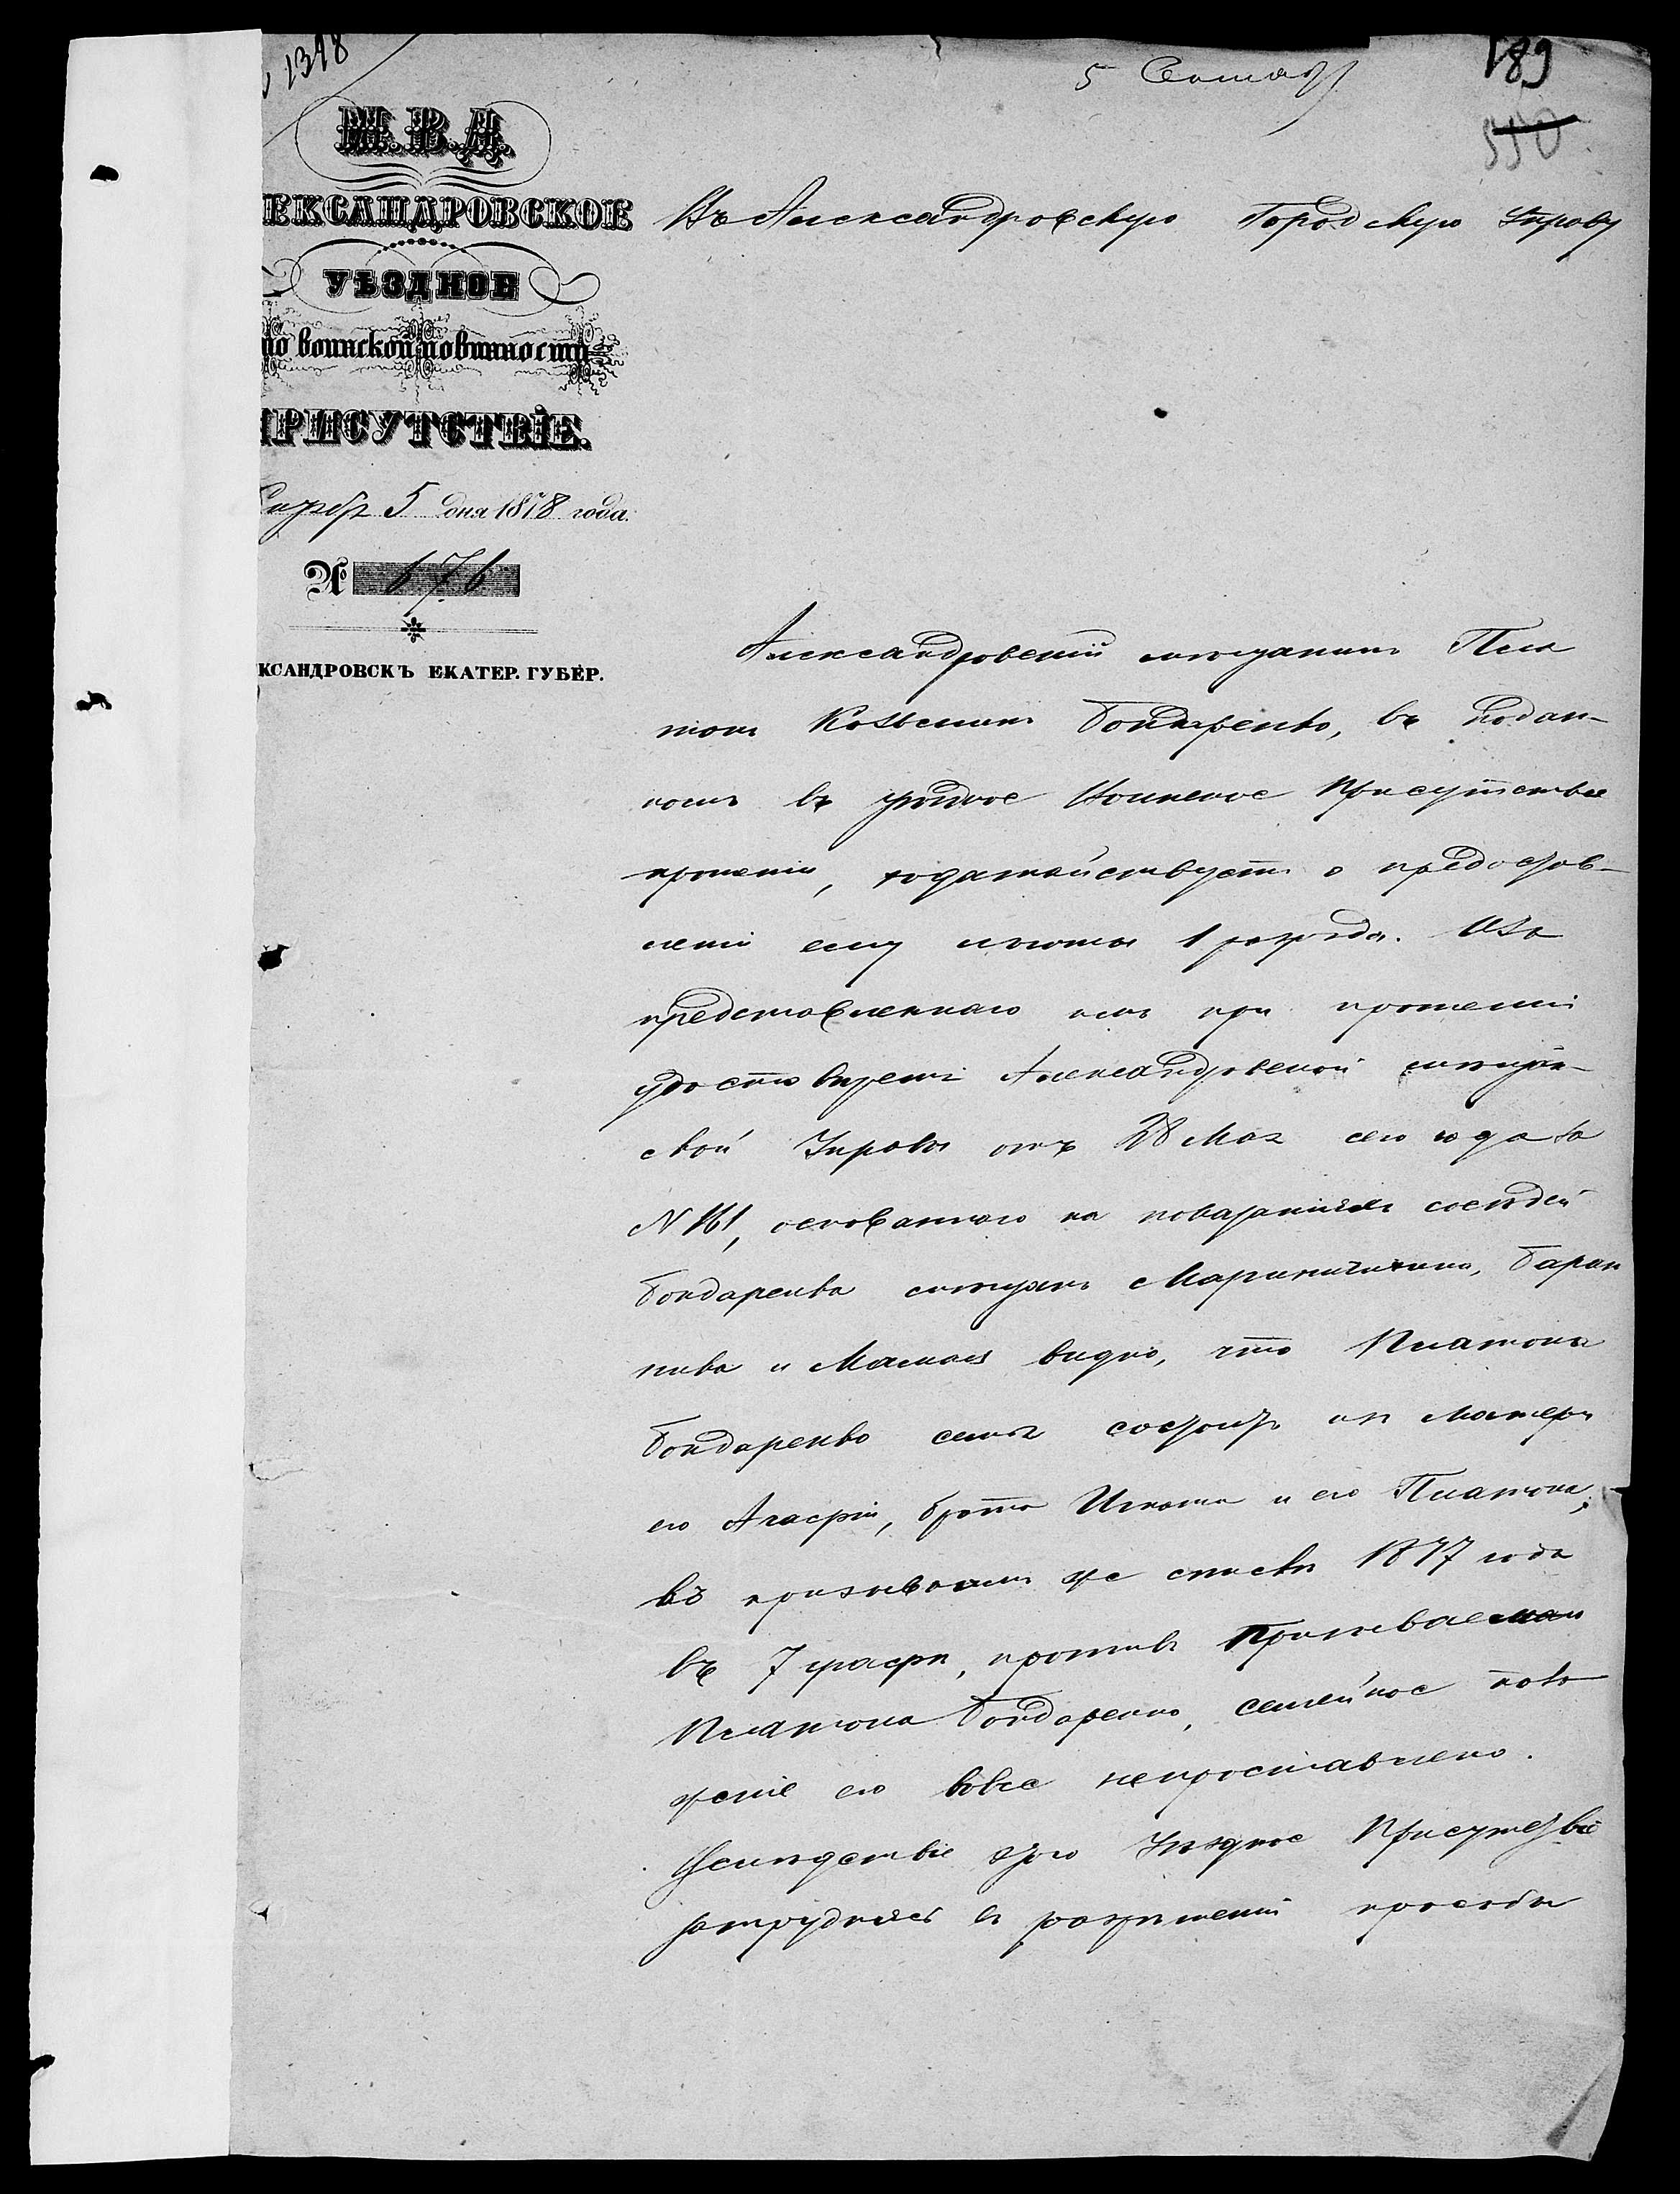 1318
5 Сентяб
189
550
М. В. Д.
ЕКСАНДРОВСКОЕ
УѢЗДНОЕ
по воинской повинности
РИСУТСТВІЕ.
5 дня 1878 года.
№ 676
КСАНДРОВСКЪ ЕКАТЕР. ГУБЕР.
Въ Александровскую Городскую Управу
Александровскій мѣщанинъ Пла
тонъ Козьминъ Бондаренко, въ подан-
номъ въ уѣздное Воинское Присутствіе
прошеніи, ходатайствуетъ о предостав-
леніи ему льготы 1 разряда. Изъ
представленнаго имъ при прошеніи
удостовѣренія Александровской мѣщан-
ской Управы отъ 28 Мая сего года за
N 161, основаннаго на показаніяхъ сосѣдей
Бондаренка мѣщанъ Баран
ника и Мамая видно, что Платона
Бондаренко семья состоитъ изъ матери
его брата Игната и его Платона;
въ призывномъ же спискѣ 1877 года
въ 7 графѣ, противъ призываемаго
Платона Бондаренко, семейное поло
женіе его вовсе непроставлено.
Вслѣдствіе чего Уѣздное Присутствіе
затрудняясь въ разрѣшеніи просьбы